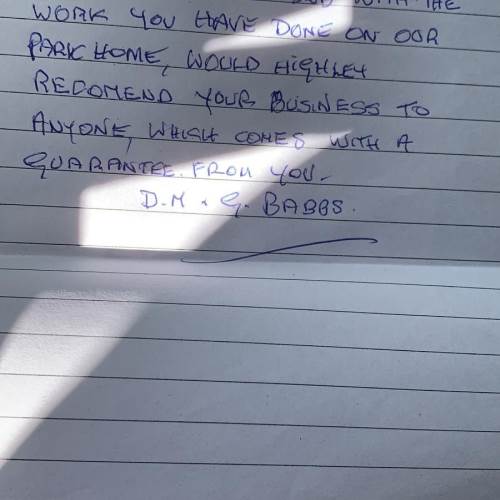 WITH THE
WORK YOU HAVE DONE ON OOR
PARK HOME, WOULD HIGHLEY
REDOMEND YOUR BUSINESS TO
ANYONE, WHISH COMES WITH A
GUARANTEE. FROM YOU.
D.M. G. BABBS.